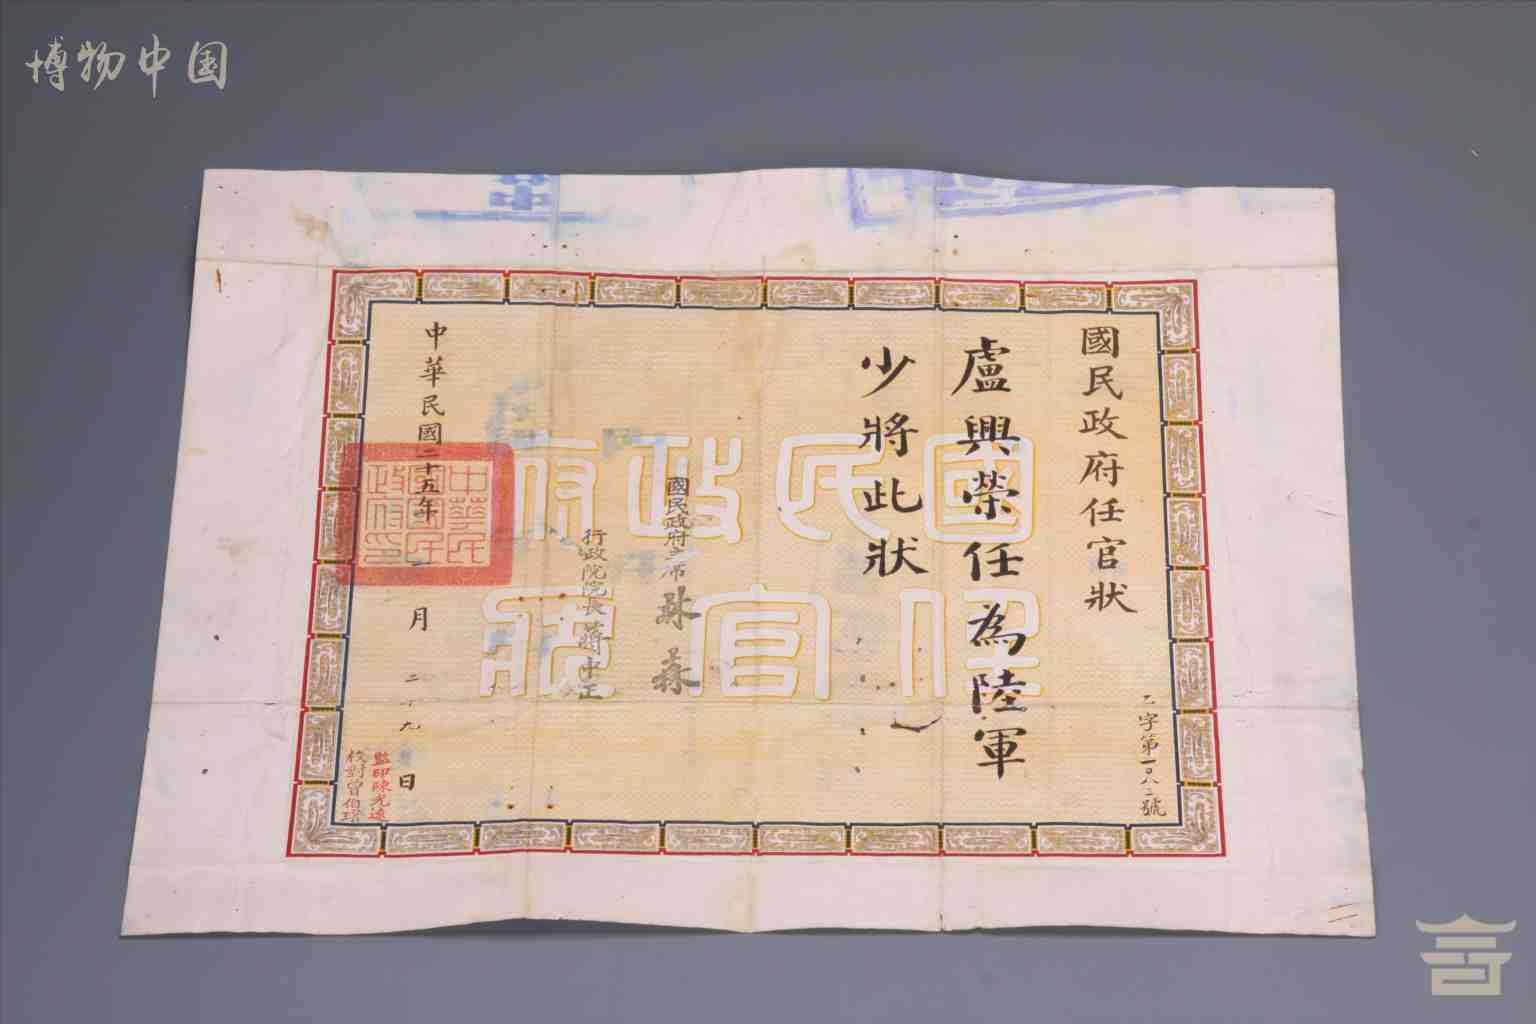 博物中国
國民政府任官狀
乙字第一〇八二號
盧興榮任為陸軍
少將此狀
國民政府
任官狀
國民政府主席 林森
行政院院長 蔣中正
中華民國二十五年
月二十九日
中華民
國國民
政府印
監印陳光遠
校對曾伯